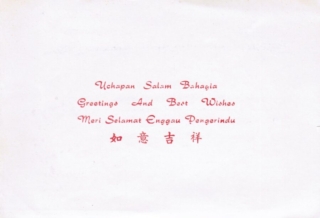 Uchapan Salam Bahagia
Greetings And Best Wishes
Meri Selamat Enggau Pengerindu
如意吉祥